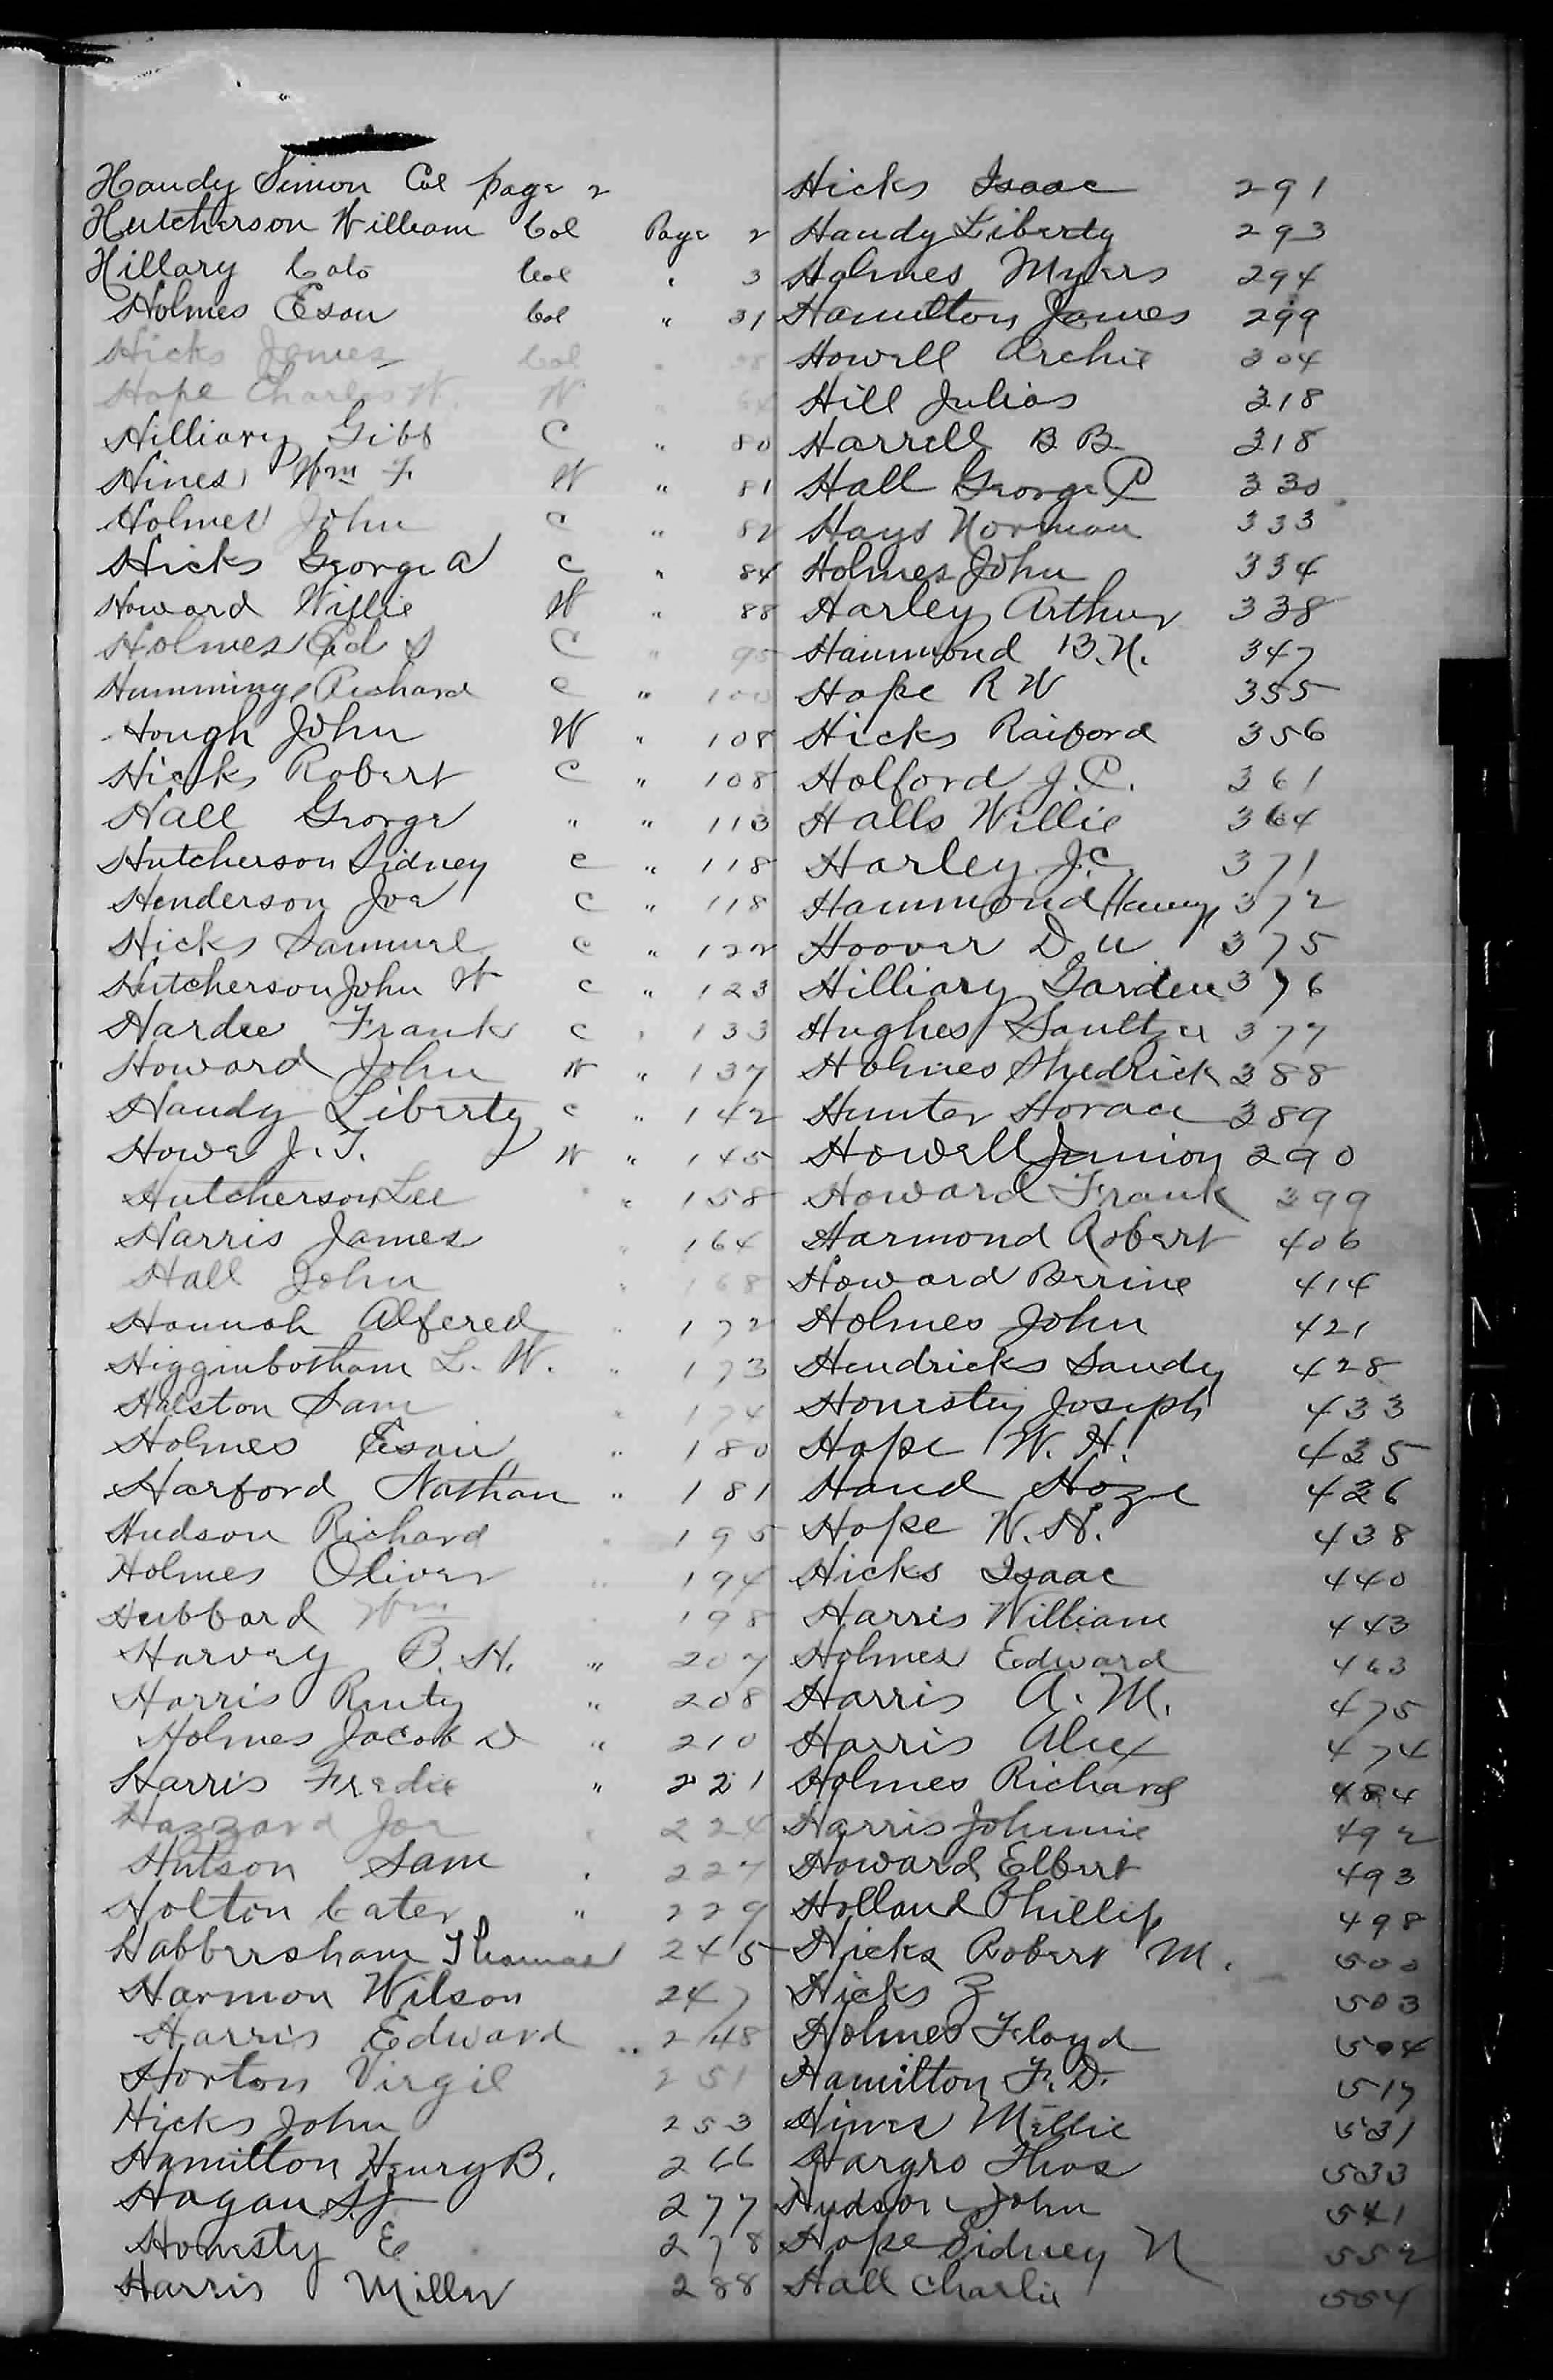 Handy Simon Col page 2
Hutcherson William Col Page 2
Hillary Cato Col " 3
Holmes Esau Col " 31
Hicks James Col " 38
Hope Charles W. W " 64
Hilliary Gibb C " 80
Hines Wm F. W " 81
Holmes John C " 82
Hicks George A C " 84
Howard Willie W " 88
Holmes Ed S C " 95
Humming Richard C " 100
Hough John W " 108
Hicks Robert C " 108
Hall George " " 113
Hutcherson Sidney C " 118
Henderson Joe C " 118
Hicks Samuel C " 122
Hutcherson John W C " 123
Hardee Frank C " 133
Howard John W " 137
Handy Liberty C " 142
Howe J. T. W " 145
Hutcherson Lee " " 158
Harris James " 164
Hall John " 168
Hannah Alfered " 172
Higginbotham L. W. " 173
Halston Sam " 174
Holmes Esau " 180
Harford Nathan " 181
Hudson Richard " 195
Holmes Oliver " 194
Hubbard Wm " 198
Harvey B. H. " 207
Harris Renty " 208
Holmes Jacob D " 210
Harris Fredie " 221
Hazzard Joe " 224
Hutson Sam " 227
Holton Cater " 229
Habbersham Thomas 245
Harmon Wilson 247
Harris Edward " 248
Horton Virgil 251
Hicks John 253
Hamilton Henry B. 266
Hagan 277
Honesty E 278
Harris Miller 288
Hicks Isaac 291
Handy Liberty 293
Holmes Myers 294
Hamilton James 299
Howell Archie 304
Hill Julias 318
Harrell B B 318
Hall George P 330
Hays Norman 333
Holmes John 334
Harley Arthur 338
Hammond B. N. 347
Hope R W 355
Hicks Raiford 356
Holford J. P. 361
Halls Willie 364
Harley J. C. 371
Hammond Henry 372
Hoover D U 375
Hilliary Garden 376
Hughes Saultzer 377
Holmes Shedrick 388
Hunter Horace 389
Howell Junior 290
Howard Frank 399
Harmond Robert 406
Howard Perrine 414
Holmes John 421
Hendricks Sandy 428
Honesty Joseph 433
Hope W. H. 435
Hand Hoze 436
Hope W. H. 438
Hicks Isaac 440
Harris William 443
Holmes Edward 463
Harris A. M. 475
Harris Alex 474
Holmes Richard 484
Harris Johnnie 492
Howard Elbert 493
Holland Phillip 498
Hicks Robert M. 500
Hicks Z 503
Holmes Floyd 504
Hamilton F. D. 517
Hines Mellie 531
Hargro Thos 533
Hudson John 541
Hope Sidney N 552
Hall Charlie 554